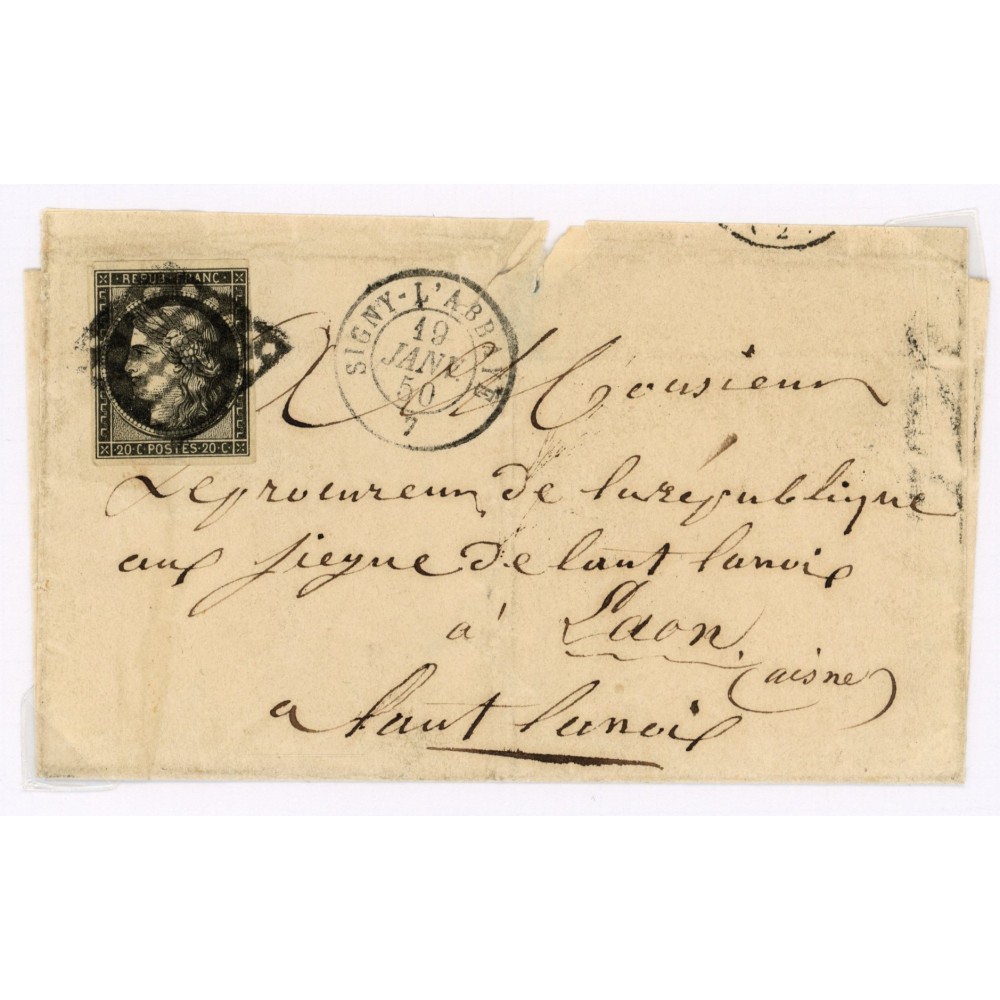 REPUB·FRANC·
20·C·POSTES·20·C·
SIGNY-L'ABBAYE
19
JANV.
50
7
2
A Monsieur
Leprocureur de larépublique
aux siegne de laut lanoix
a' Laon
(aisne)
a laut lanoix